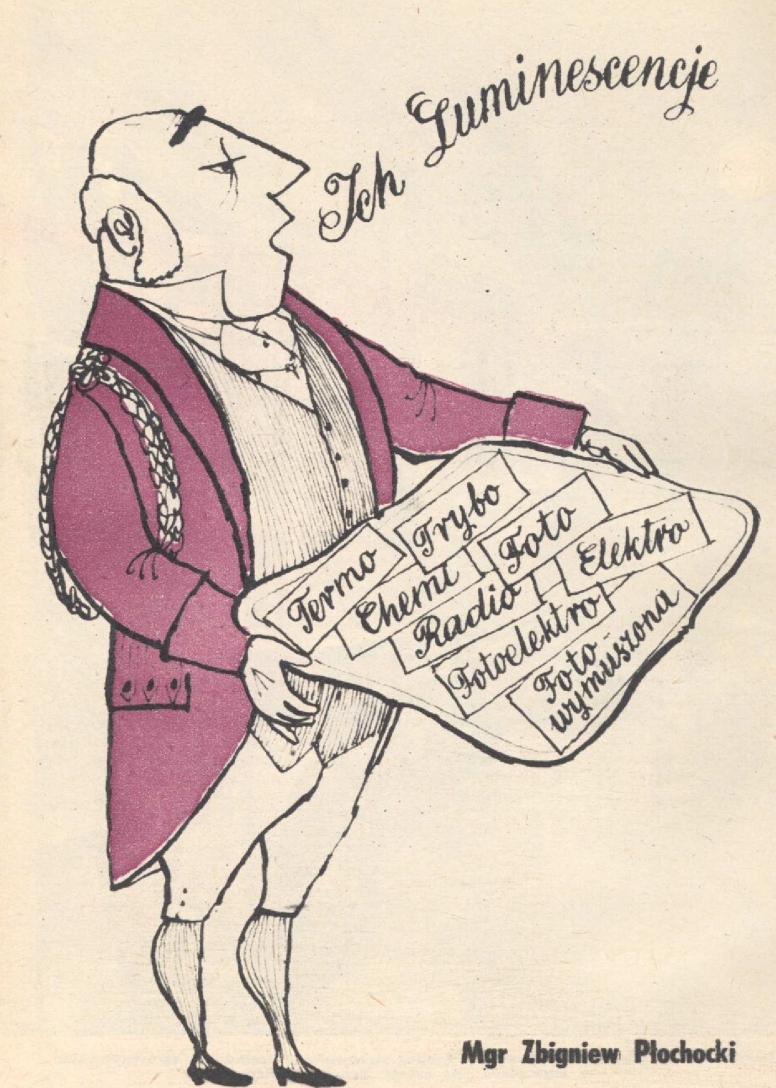 Ich Luminescencje
Termo
Trybo
Chemi
Foto
Radio
Elektro
Fotoelektro
Foto
wymuszona
Mgr Zbigniew Płochocki